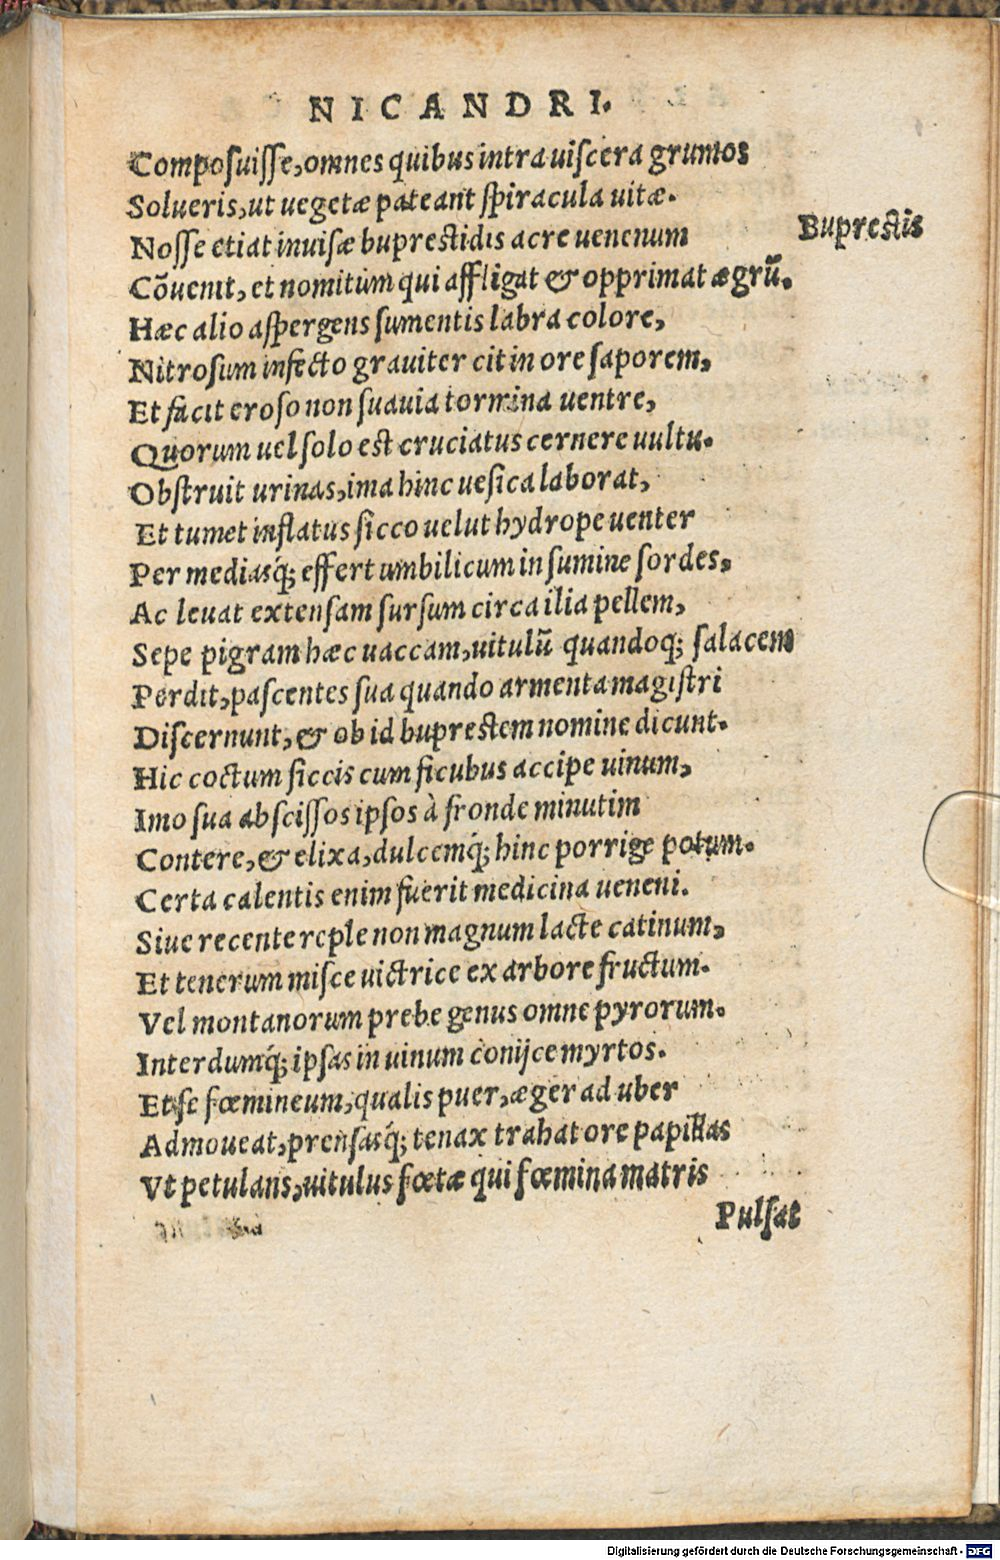 NICANDRI.
Composuisse, omnes quibus intra uiscera grumos
Solueris, ut uegetæ pateant spiracula uitæ.
Nosse etiāt inuisæ buprestidis acre uenenum
Buprestis
Cōuenit, et nomitum qui affligat & opprimat ægrū.
Hæc alio aspergens sumentis labra colore,
Nitrosum infecto grauiter cit in ore saporem,
Et facit eroso non suauia tormina uentre,
Quorum uel solo est cruciatus cernere uultu.
Obstruit urinas, ima hinc uesica laborat,
Et tumet inflatus sicco uelut hydrope uenter
Per mediasq́; effert umbilicum in sumine sordes,
Ac leuat extensam sursum circa ilia pellem,
Sepe pigram hæc uaccam, uitulū quandoq; salacem
Perdit, pascentes sua quando armenta magistri
Discernunt, & ob id buprestem nomine dicunt.
Hic coctum siccis cum ficubus accipe uinum,
Imo sua abscissos ipsos à fronde minutim
Contere, & elixa, dulcemq́; hinc porrige potum.
Certa calentis enim fuerit medicina ueneni.
Siue recente reple non magnum lacte catinum,
Et tenerum misce uictrice ex arbore fructum.
Vel montanorum prebe genus omne pyrorum.
Interdumq́; ipsas in uinum conijce myrtos.
Et se fœmineum, qualis puer, æger ad uber
Admoueat, prensasq́; tenax trahat ore papillas
Vt petulans, uitulus fœtæ qui fœmina matris
Pulsat
Digitalisierung gefördert durch die Deutsche Forschungsgemeinschaft - DFG